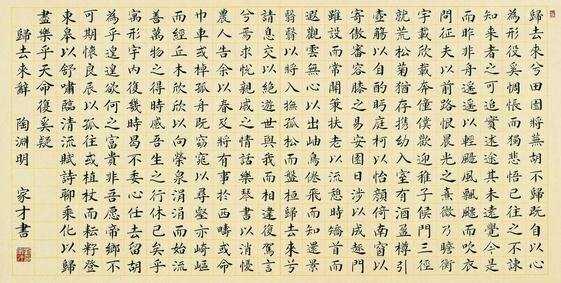 歸去來兮田園將蕪胡不歸既自以心
為形役奚惆悵而獨悲悟已往之不諫
知來者之可追實迷途其未遠覺今是
而昨非舟遙遙以輕颺風飄飄而吹衣
問征夫以前路恨晨光之熹微乃瞻衡
宇載欣載奔僮僕歡迎稚子候門三徑
就荒松菊猶存攜幼入室有酒盈樽引
壺觴以自酌眄庭柯以怡顏倚南窗以
寄傲審容膝之易安園日涉以成趣門
雖設而常關策扶老以流憩時矯首而
遐觀雲無心以出岫鳥倦飛而知還景
翳翳以將入撫孤松而盤桓歸去來兮
請息交以絕遊世與我而相違復駕言
兮焉求悅親戚之情話樂琴書以消憂
農人告余以春及將有事於西疇或命
巾車或棹孤舟既窈窕以尋壑亦崎嶇
而經丘木欣欣以向榮泉涓涓而始流
善萬物之得時感吾生之行休已矣乎
寓形宇內復幾時曷不委心任去留胡
為乎遑遑欲何之富貴非吾願帝鄉不
可期懷良辰以孤往或植杖而耘耔登
東皋以舒嘯臨清流賦詩聊乘化以歸
盡樂乎天命復奚疑
歸去來辭 陶淵明 家才書